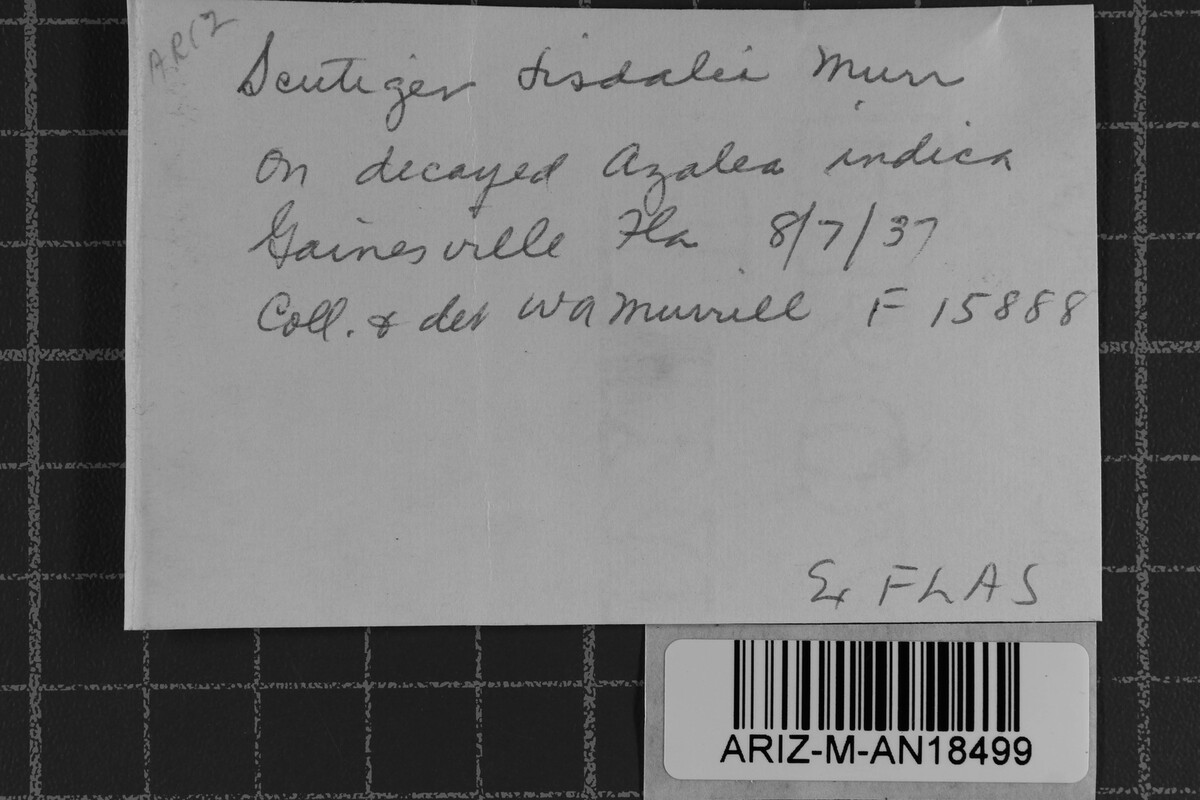 ARIZ
Scutiger tisdalei Murr
On decayed Azalea indica
Gainesville Fla 8/7/37
Coll. & det WA Murrill F 15888
Ex FLAS
ARIZ-M-AN18499